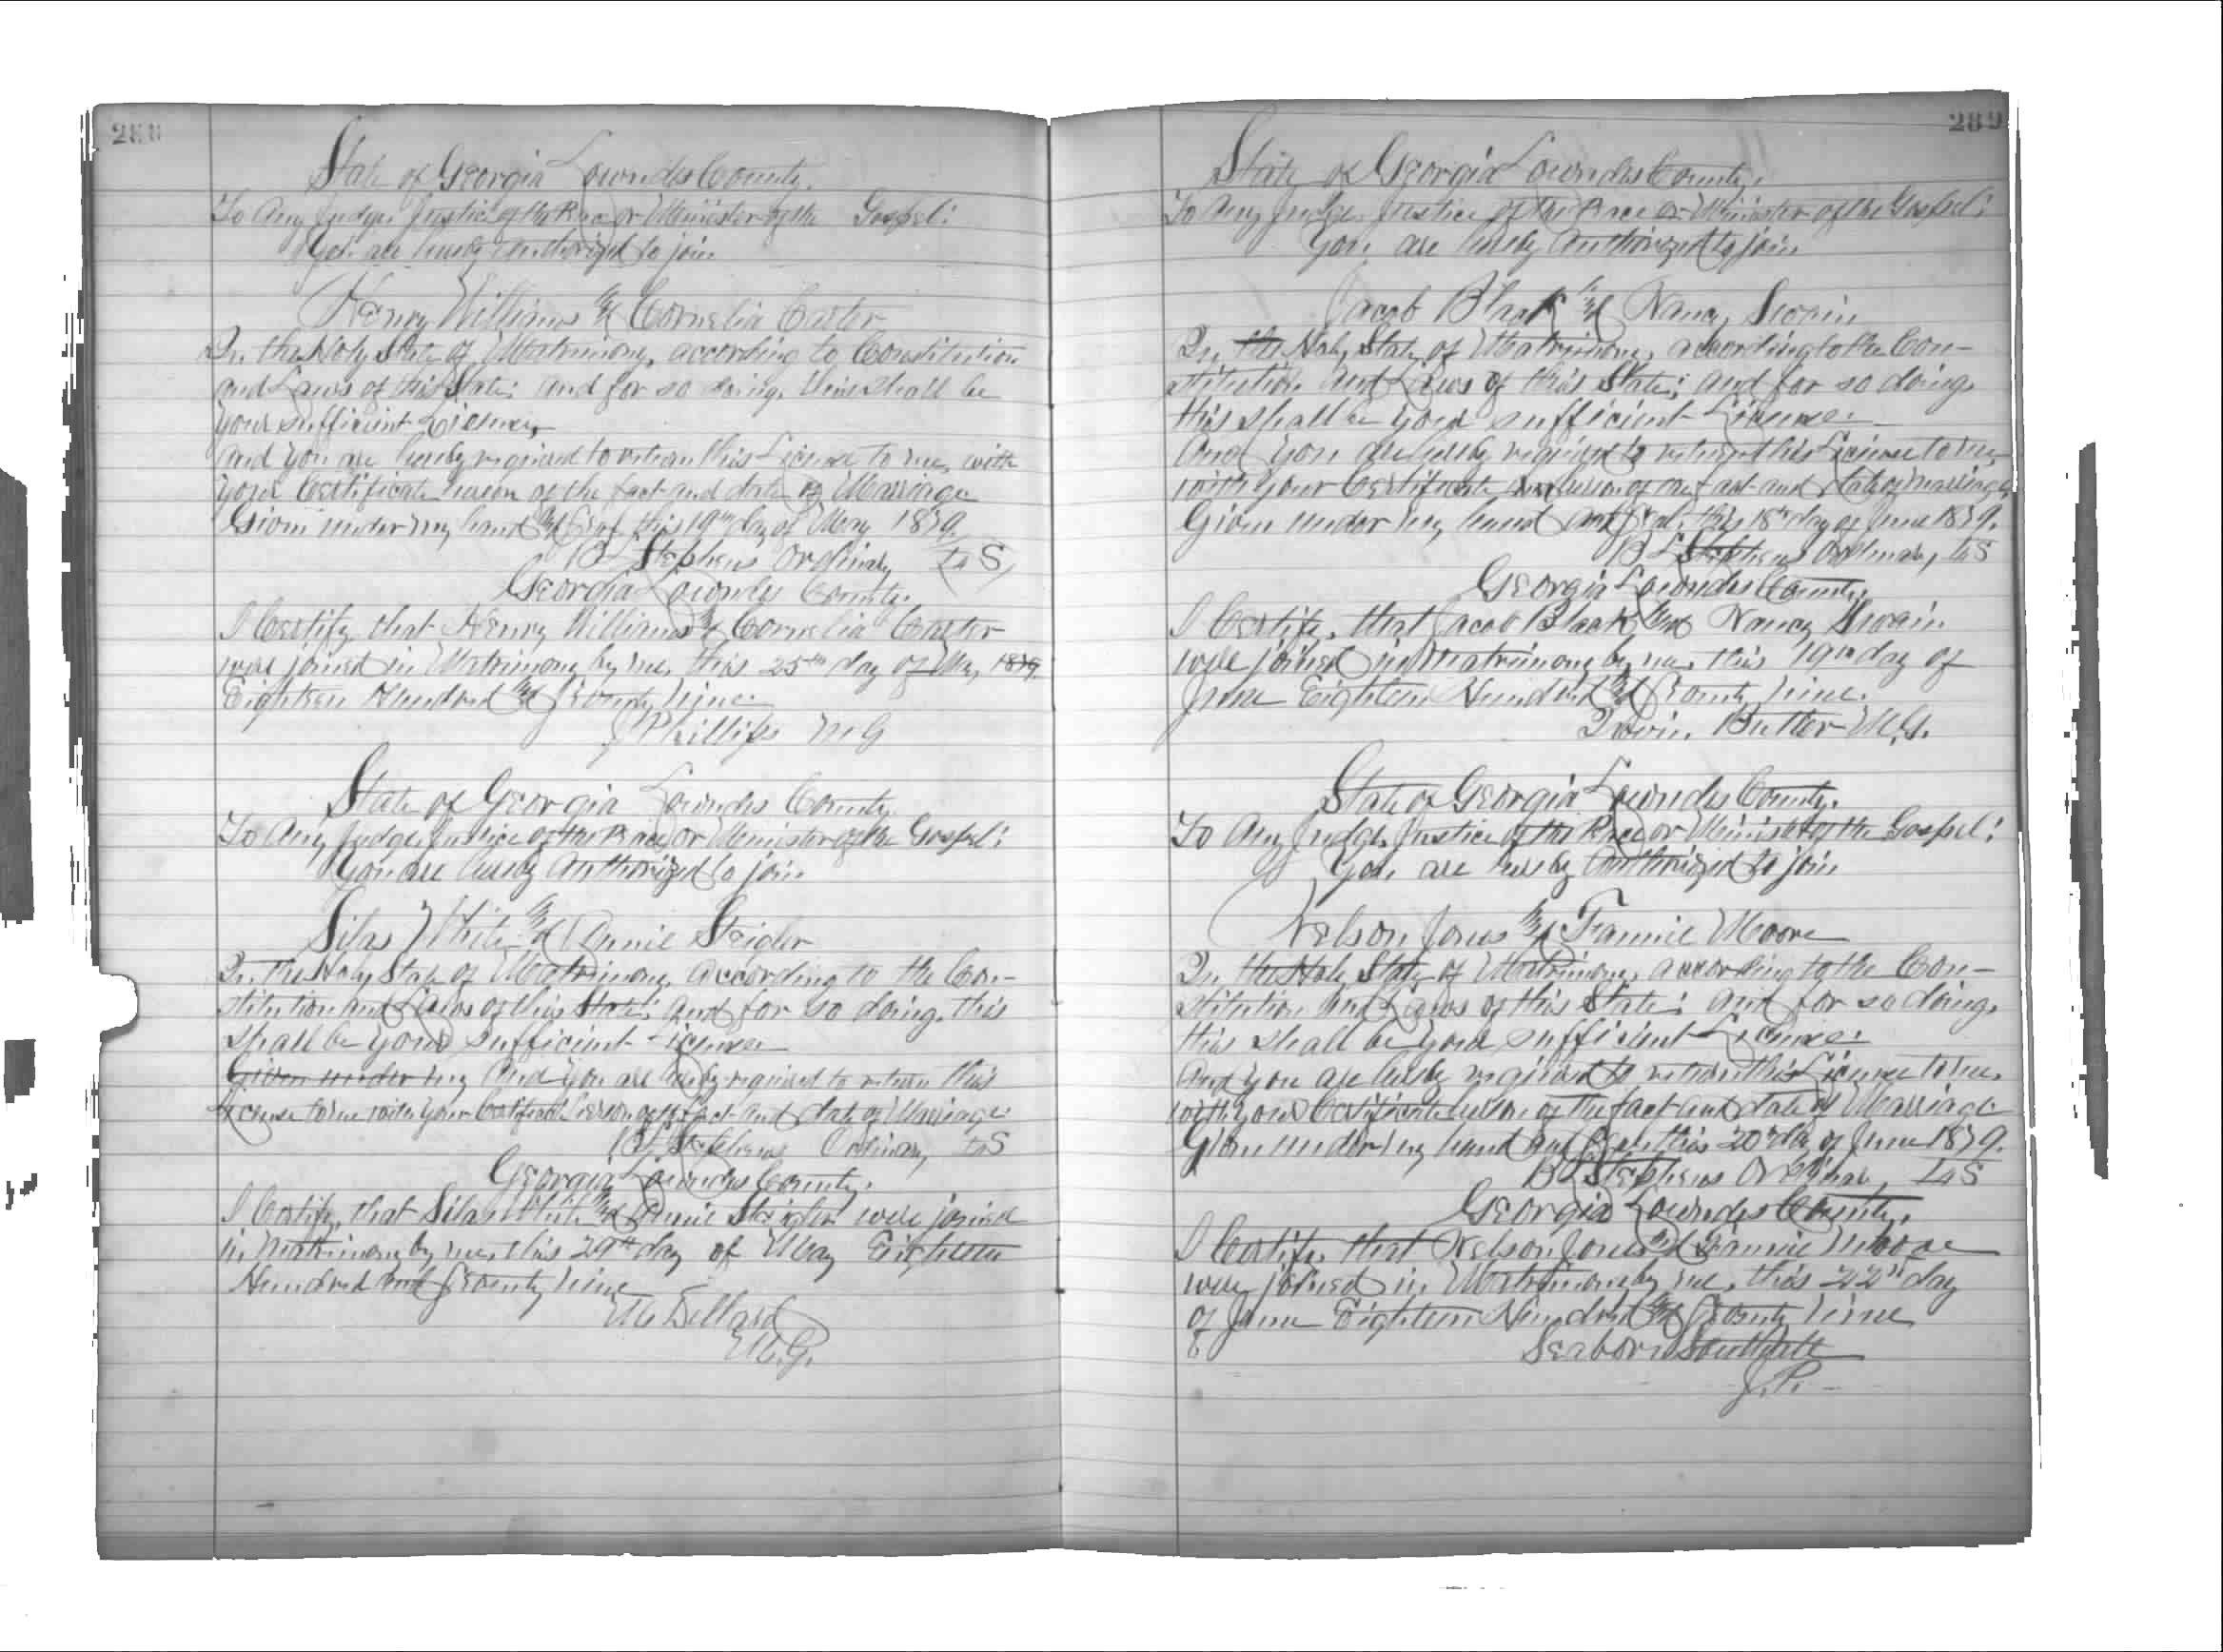 288
State of Georgia Lowndes County.
To Any Judge, Justice of the Peace or Minister of the Gospel:
You are hereby authorized to join
Henry Williams and Cornelia Carter
In the Holy State of Matrimony, according to Constitution
and Laws of this State; and for so doing, this shall be
your sufficient License,
And you are hereby required to return this License to me, with
your Certificate hereon of the fact and date of Marriage
Given under my hand and Seal, this 19th day of May 1879.
B L Stephens Ordinary L S
Georgia Lowndes County.
I Certify, that Henry Williams & Cornelia Carter
were joined in Matrimony by me, this 25th day of May, 1879.
Eighteen Hundred and Seventy nine
J Phillips M G
State of Georgia Lowndes County
To Any Judge, Justice of the Peace or Minister of the Gospel:
You are hereby authorized to join
Silas White and Annie Steigler
In the Holy State of Matrimony, according to the Con-
stitution and Laws of this State; and for so doing, this
shall be your sufficient License
Given under my And you are hereby required to return this
License to me with your Certificate hereon of the fact and date of Marriage
B L Stephens Ordinary L S
Georgia Lowndes County.
I Certify, that Silas White and Annie Steigler were joined
in Matrimony by me, this 29th day of May Eighteen
Hundred and Seventy nine
M Dellard
M.G.
289
State of Georgia Lowndes County.
To Any Judge, Justice of the Peace or Minister of the Gospel:
You are hereby authorized to join
Jacob Black and Nancy Swain
In the Holy State of Matrimony, according to the Con-
stitution and Laws of this State; and for so doing,
this shall be your sufficient License.
And you are hereby required to return this License to me,
with your Certificate hereon of the fact and date of marriage,
Given under my hand and Seal, this 18th day of June 1879.
B L Stephens Ordinary, L S
Georgia Lowndes County.
I Certify, that Jacob Black and Nancy Swain
were joined in Matrimony by me, this 19th day of
June Eighteen Hundred and Seventy nine.
Irwin Butler M.G.
State of Georgia Lowndes County.
To Any Judge, Justice of the Peace or Minister of the Gospel:
You are hereby authorized to join
Nelson Jones and Fannie Moore
In the Holy State of Matrimony, according to the Con-
stitution and Laws of this State; and for so doing,
this shall be your sufficient License:
And you are hereby required to return this License to me,
with your Certificate hereon of the fact and date of Marriage
Given under my hand and Seal this 20th day of June 1879.
B L Stephens Ordinary, L S
Georgia Lowndes County.
I Certify, that Nelson Jones and Fannie Moore
were joined in Matrimony by me, this 22nd day
of June Eighteen Hundred and Seventy nine
Seaborn
J.P.